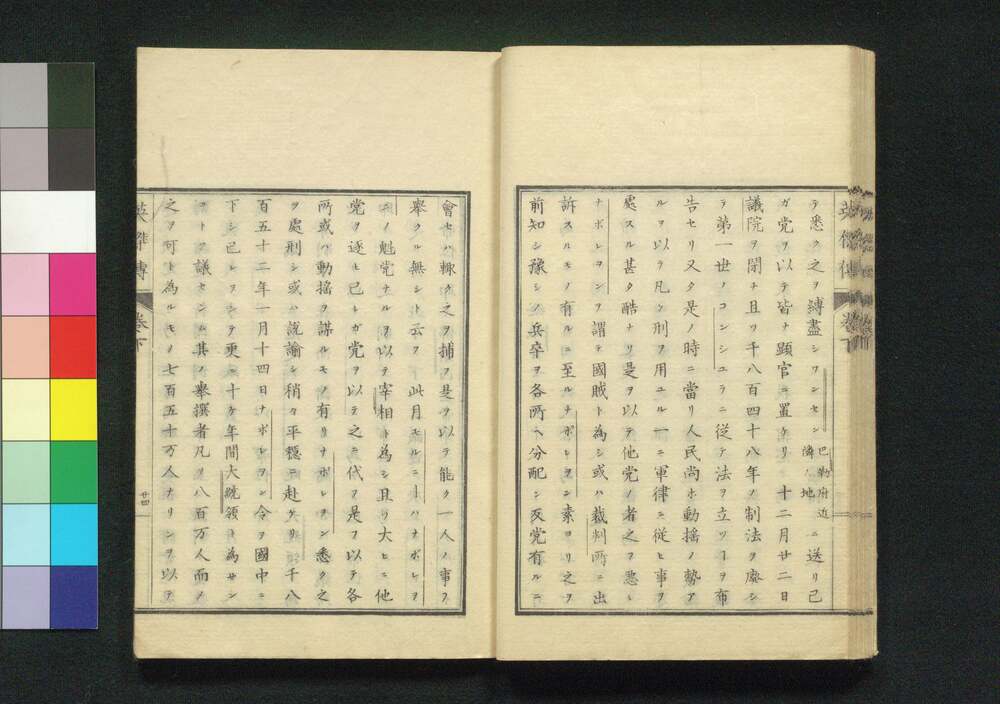 テ悉ク之ヲ縛盡シワンセン巴勒府近隣ノ地ニ送リ己
ガ党ヲ以テ皆ナ顕官ニ置ケリ 十二月廿二日
議院ヲ閉チ且ツ千八百四十八年ノ制法ヲ廃シ
ラ第一世ノコンシユラニ従テ法ヲ立ツヿヲ布
告セリ又タ是ノ時ニ當リ人民尚ホ動揺ノ勢ア
ルヲ以テ凡ソ刑ヲ用ユル一ニ軍律ニ従ヒ事ヲ
處スル甚タ酷ナリ是ヲ以テ他党ノ者之ヲ悪ミ
ナポレヲンヲ謂テ國賊ト為シ或ハ裁判所ニ出
訴スルモノ有ルニ至ルナポレヲン素ヨリ之ヲ
前知シ豫シメ兵卒ヲ各所ヘ分配シ反党有ルニ
會セハ輙ク之ヲ捕フ是ヲ以テ能ク一人ノ事ヲ
舉クル無シト云フ 此月モルニーハナポレヲ
ンノ魁党ナルヲ以テ宰相ト為シ且ツ大ヒニ他
党ヲ逐ヒ己レガ党ヲ以テ之ニ代フ是ヲ以テ各
所或ハ動揺ヲ謀ルモノ有リナポレヲン悉ク之
ヲ處刑シ或ハ説諭シ稍ク平穏ニ赴ケリ 千八
百五十二年一月十四日ナポレヲン令ヲ國中ニ
下シ已レヲシテ更ニ十ケ年間大統領ト為サン
コトヲ議センム其ノ舉撰者凡ソ八百万人而メ
之ヲ可ト為ルモノ七百五十万人ナリシヲ以テ
英傑傳 巻下 廿四